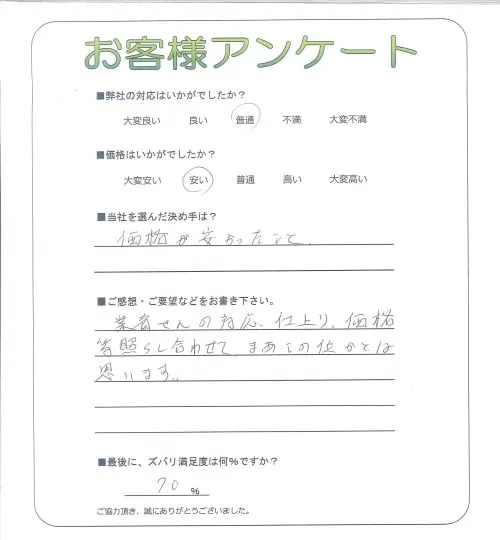 お客様アンケート
■弊社の対応はいかがでしたか？
大変良い 良い 普通 不満 大変不満
■価格はいかがでしたか？
大変安い 安い 普通 高い 大変高い
■当社を選んだ決め手は？
価格が安かったこと
■ご感想・ご要望などをお書き下さい。
業者さんの対応、仕上り、価格
等照らし合わせて、まあこの位かとは
思います。
■最後に、ズバリ満足度は何％ですか？
70 ％
ご協力頂き、誠にありがとうございました。